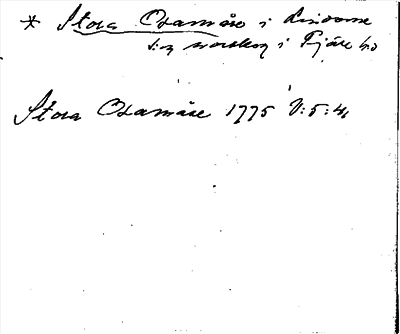 * Stora Oxamåse i Lindome
s:n nordlig i Fjäre hd
Stora Oxamåse 1775 V:5:4